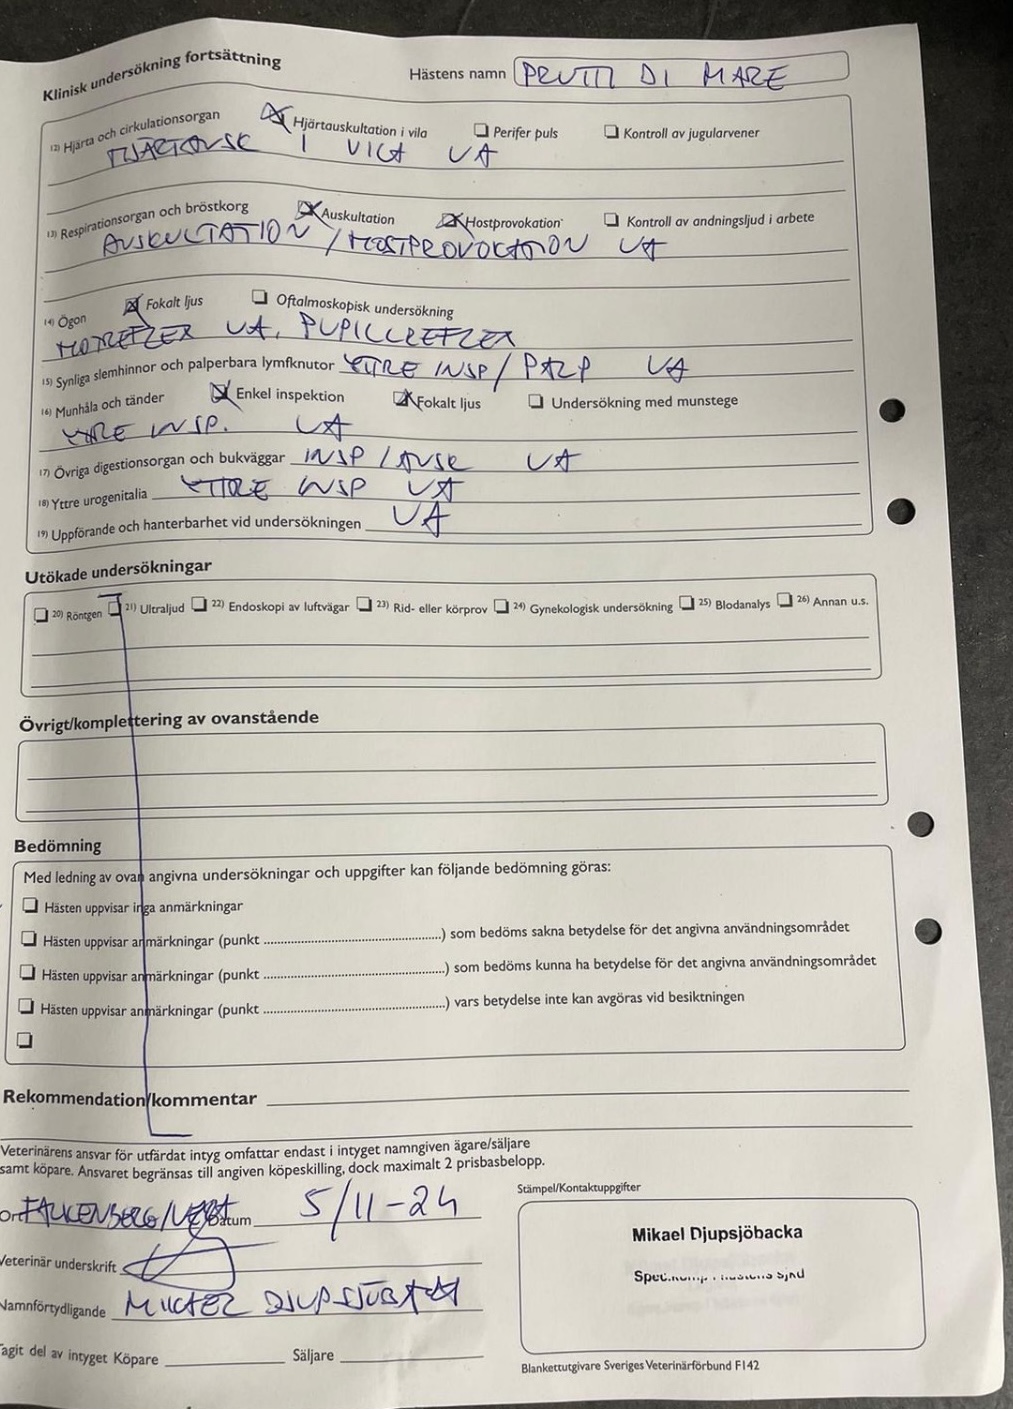 Klinisk undersökning fortsättning
Hästens namn PRUTTI DI MARE
12) Hjärta och cirkulationsorgan Hjärtauskultation i vila Perifer puls Kontroll av jugularvener
HJÄRTAUSK I VILA UA
13) Respirationsorgan och bröstkorg Auskultation Hostprovokation Kontroll av andningsljud i arbete
AUSKULTATION / HOSTPROVOKATION UA
14) Ögon Fokalt ljus Oftalmoskopisk undersökning
HOTREFLEX UA, PUPILLREFLEX
15) Synliga slemhinnor och palperbara lymfknutor YTTRE INSP / PALP UA
16) Munhåla och tänder Enkel inspektion Fokalt ljus Undersökning med munstege
YTTRE INSP. UA
17) Övriga digestionsorgan och bukväggar INSP / AUSK UA
18) Yttre urogenitalia YTTRE INSP UA
19) Uppförande och hanterbarhet vid undersökningen UA
Utökade undersökningar
20) Röntgen 21) Ultraljud 22) Endoskopi av luftvägar 23) Rid- eller körprov 24) Gynekologisk undersökning 25) Blodanalys 26) Annan u.s.
Övrigt/komplettering av ovanstående
Bedömning
Med ledning av ovan angivna undersökningar och uppgifter kan följande bedömning göras:
Hästen uppvisar inga anmärkningar
Hästen uppvisar anmärkningar (punkt ..........) som bedöms sakna betydelse för det angivna användningsområdet
Hästen uppvisar anmärkningar (punkt ..........) som bedöms kunna ha betydelse för det angivna användningsområdet
Hästen uppvisar anmärkningar (punkt ..........) vars betydelse inte kan avgöras vid besiktningen
Rekommendation/kommentar
Veterinärens ansvar för utfärdat intyg omfattar endast i intyget namngiven ägare/säljare
samt köpare. Ansvaret begränsas till angiven köpeskilling, dock maximalt 2 prisbasbelopp.
Ort FALKENBERG Datum 5/11-24
Veterinär underskrift
Namnförtydligande MIKAEL DJUPSJÖBACKA
Tagit del av intyget Köpare Säljare
Stämpel/Kontaktuppgifter
Mikael Djupsjöbacka
Blankettutgivare Sveriges Veterinärförbund F142